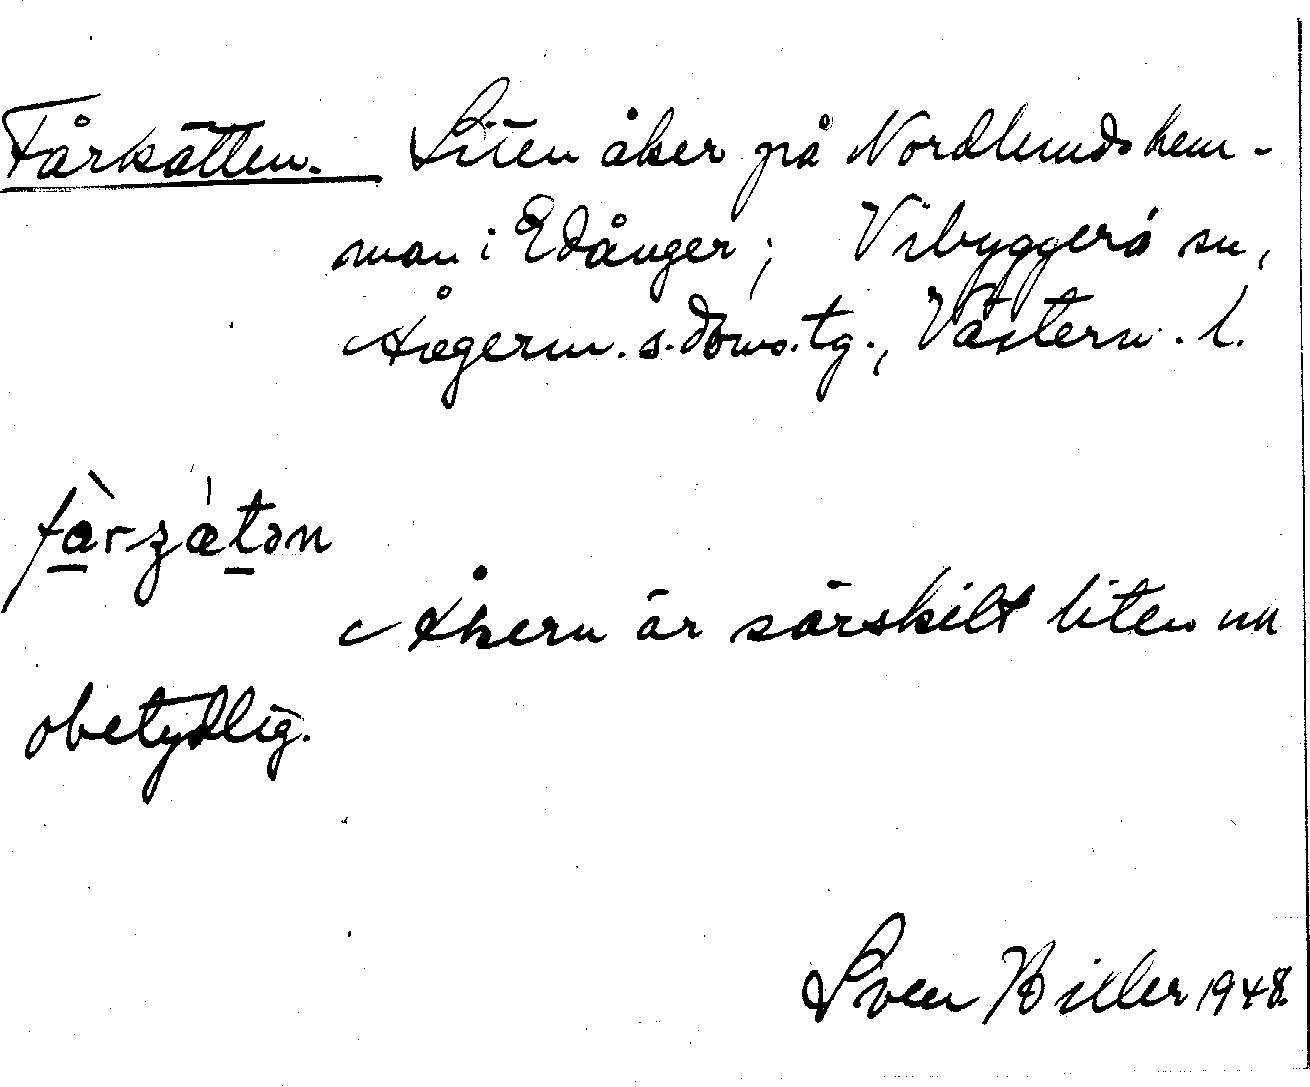 Fårkätten. Liten åker på Nordlunds hem-
man i Edånger; Vibyggerå sn,
Ångerm. s. doms. tg., Västern. l.
fàrzǽtən
Åkern är särskilt liten un
obetydlig.
Sven Biller 1948.